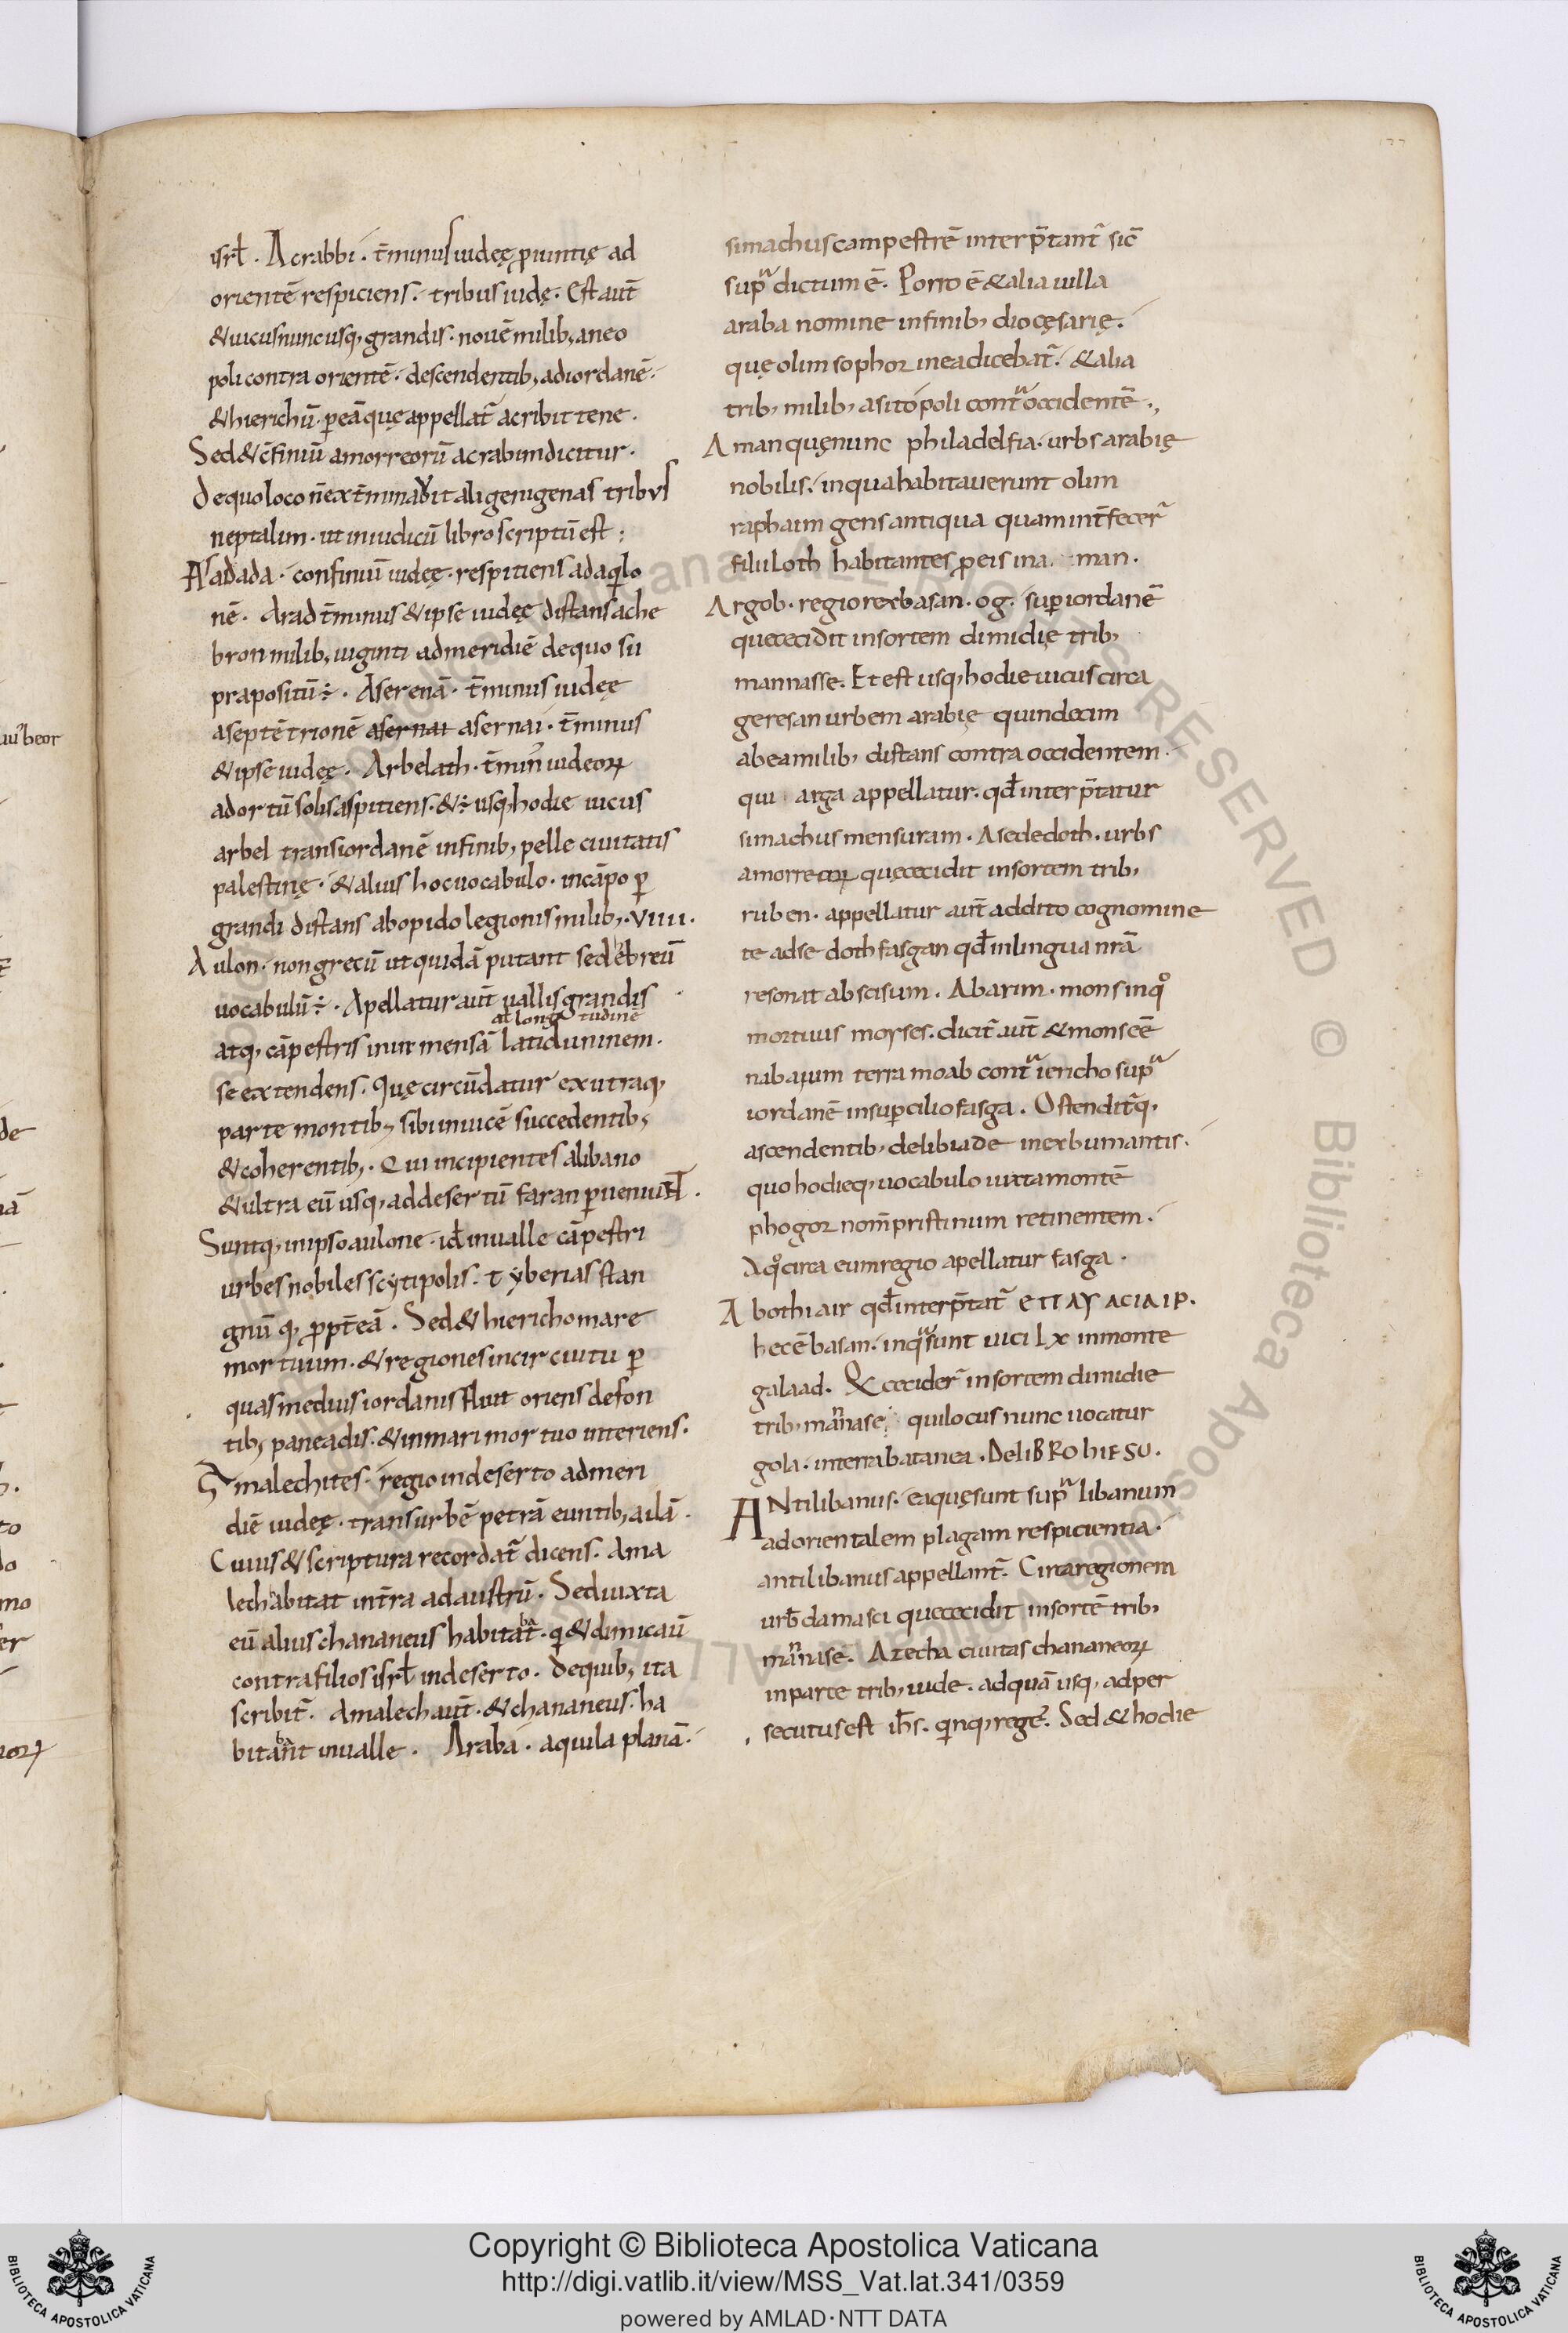 isrł . Acrabbi . t̄minus iudeę ꝓuintię ad
orientē respiciens . tribus iudę . Est aut̄
& uicus nunc usq, grandis . nouē milib, aneo
poli contra orientē . descendentib, ad iordanē .
& hierichū . p̄ eā quę appellat̄ acribittene .
Sed & c̄finiū amorreorū acrabim dicitur .
De quo loco n̄ ext̄minauit aligenigenas tribus
neptalim . ut in iudicū libro scriptū est :
Asadada . confiniū iudeę . respitiens ad aqilo
nē . Arad t̄minus & ipse iudeę distans ache
bron milib, uiginti ad meridiē de quo su
pra positū ÷ . Aserenā . t̄minus iudeę
aseptētrionē asernai asernai . t̄minus
& ipse iudeę . Arbelath . t̄min' iudeoꝝ
ad ortū solis aspitiens . & ÷ usq, hodie uicus
arbel trans iordanē in finib, pelle ciuitatis
palestinę . & alius hoc uocabulo . in cāpo p̄
grandi distans ab opido legionis milib, . VIIII .
Aulon . non grecū ut quidā putant sed ebreū
uocabulū ÷ . Apellatur aut̄ uallis grandis
at longitudinē
atq, cāpestris in inmensā latiduninem .
se extendens . Quę circūdatur ex utraq,
parte montib, sibi inuicē succedentib,
& coherentib, . Qui incipientes a libano
& ultra eū usq, ad desertū faran ꝑueniunt .
Suntq, in ipso aulone . id̄ in ualle cāpestri
urbes nobiles scytipolis . tyberias stan
gnū q, ꝓpt̄ eā . Sed & hiericho mare
mortuum . & regiones in circuitu p̄
quas medius iordanis fluit oriens de fon
tib, paneadis . & in mari mortuo interiens .
Amalechites . regio in deserto ad meri
diē iudeę . trans urbē petrā euntib, ailā .
Cuius & scriptura recordat̄ dicens . Ama
lech abitat in t̄ra ad austrū . Sed iuxta
eū alius chananeus habitat̄ . q & dimicaū
ba
contra filios isrł in deserto . de quib, ita
scribit̄ . Amalech aut̄ . & chananeus . ha
bitant̄ in ualle . Araba . aquila planā .
simachus campestrē interp̄tant̄ sic̄
supra dictum ē . Porro ē & alia uilla
araba nomine in finib, diocęsarię .
quę olim sophor inea dicebat̄ . & alia
trib, milib, a sitopoli contra occidentē .,
Aman quę nunc philadelfia . urbs arabię
nobilis . in qua habitauerunt olim
raphaim gens antiqua quam int̄fecer̄
filii loth habitantes ꝓ eis in a man .
Argob . regio rex basan . og . sup iordanē
que cecidit in sortem dimidię trib,
mannasse . Et est usq, hodie uicus circa
geresan urbem arabię quindecim
ab ea milib, distans contra occidentem .
qui arga appellatur . qd̄ interp̄tatur
simachus mensuram . Asededoth . urbs
amorreoꝝ quę cecidit in sortem trib,
ruben . appellatur aut̄ addito cognomine
te adsedoth fasgan qd̄ in lingua nr̄a
resonat abscisum . Abarim . mons in q°
mortuus moyses . dicit̄ aut̄ & mons eē
nabaium terra moab contra iericho supra
iordanē in supcilio fasga . Ostendit̄q,
ascendentib, de libiade in exbumantis .
quo hodieq, uocabulo iuxta montē
phogor nom̄ pristinum retinentem .
Aq° circa eum regio apellatur fasga .
Abothiair qd̄ interp̄tat̄ ЄΠΑΥ ΑCΙΑΙΡ .
hec ē basan . in qa sunt uici Lx in monte
galaad . & cecider̄ in sortem dimidie
trib, mannase . qui locus nunc uocatur
gola . in terra batanea . DE LIBRO hIESU .
ANtilibanus . ea quę sunt supra libanum
ad orientalem plagam respicientia .
antilibanus appellant̄ . Circa regionem
urb̄ damasci que cecidit in sortē trib,
mannase . Azecha ciuitas chananeoꝝ
in parte trib, iude . ad quā usq, ad per
secutus est ih̄s . qinq, reges . Sed & hodie
Copyright © Biblioteca Apostolica Vaticana
http://digi.vatlib.it/view/MSS_Vat.lat.341/0359
powered by AMLAD · NTT DATA
BIBLIOTECA APOSTOLICA VATICANA
BIBLIOTECA APOSTOLICA VATICANA